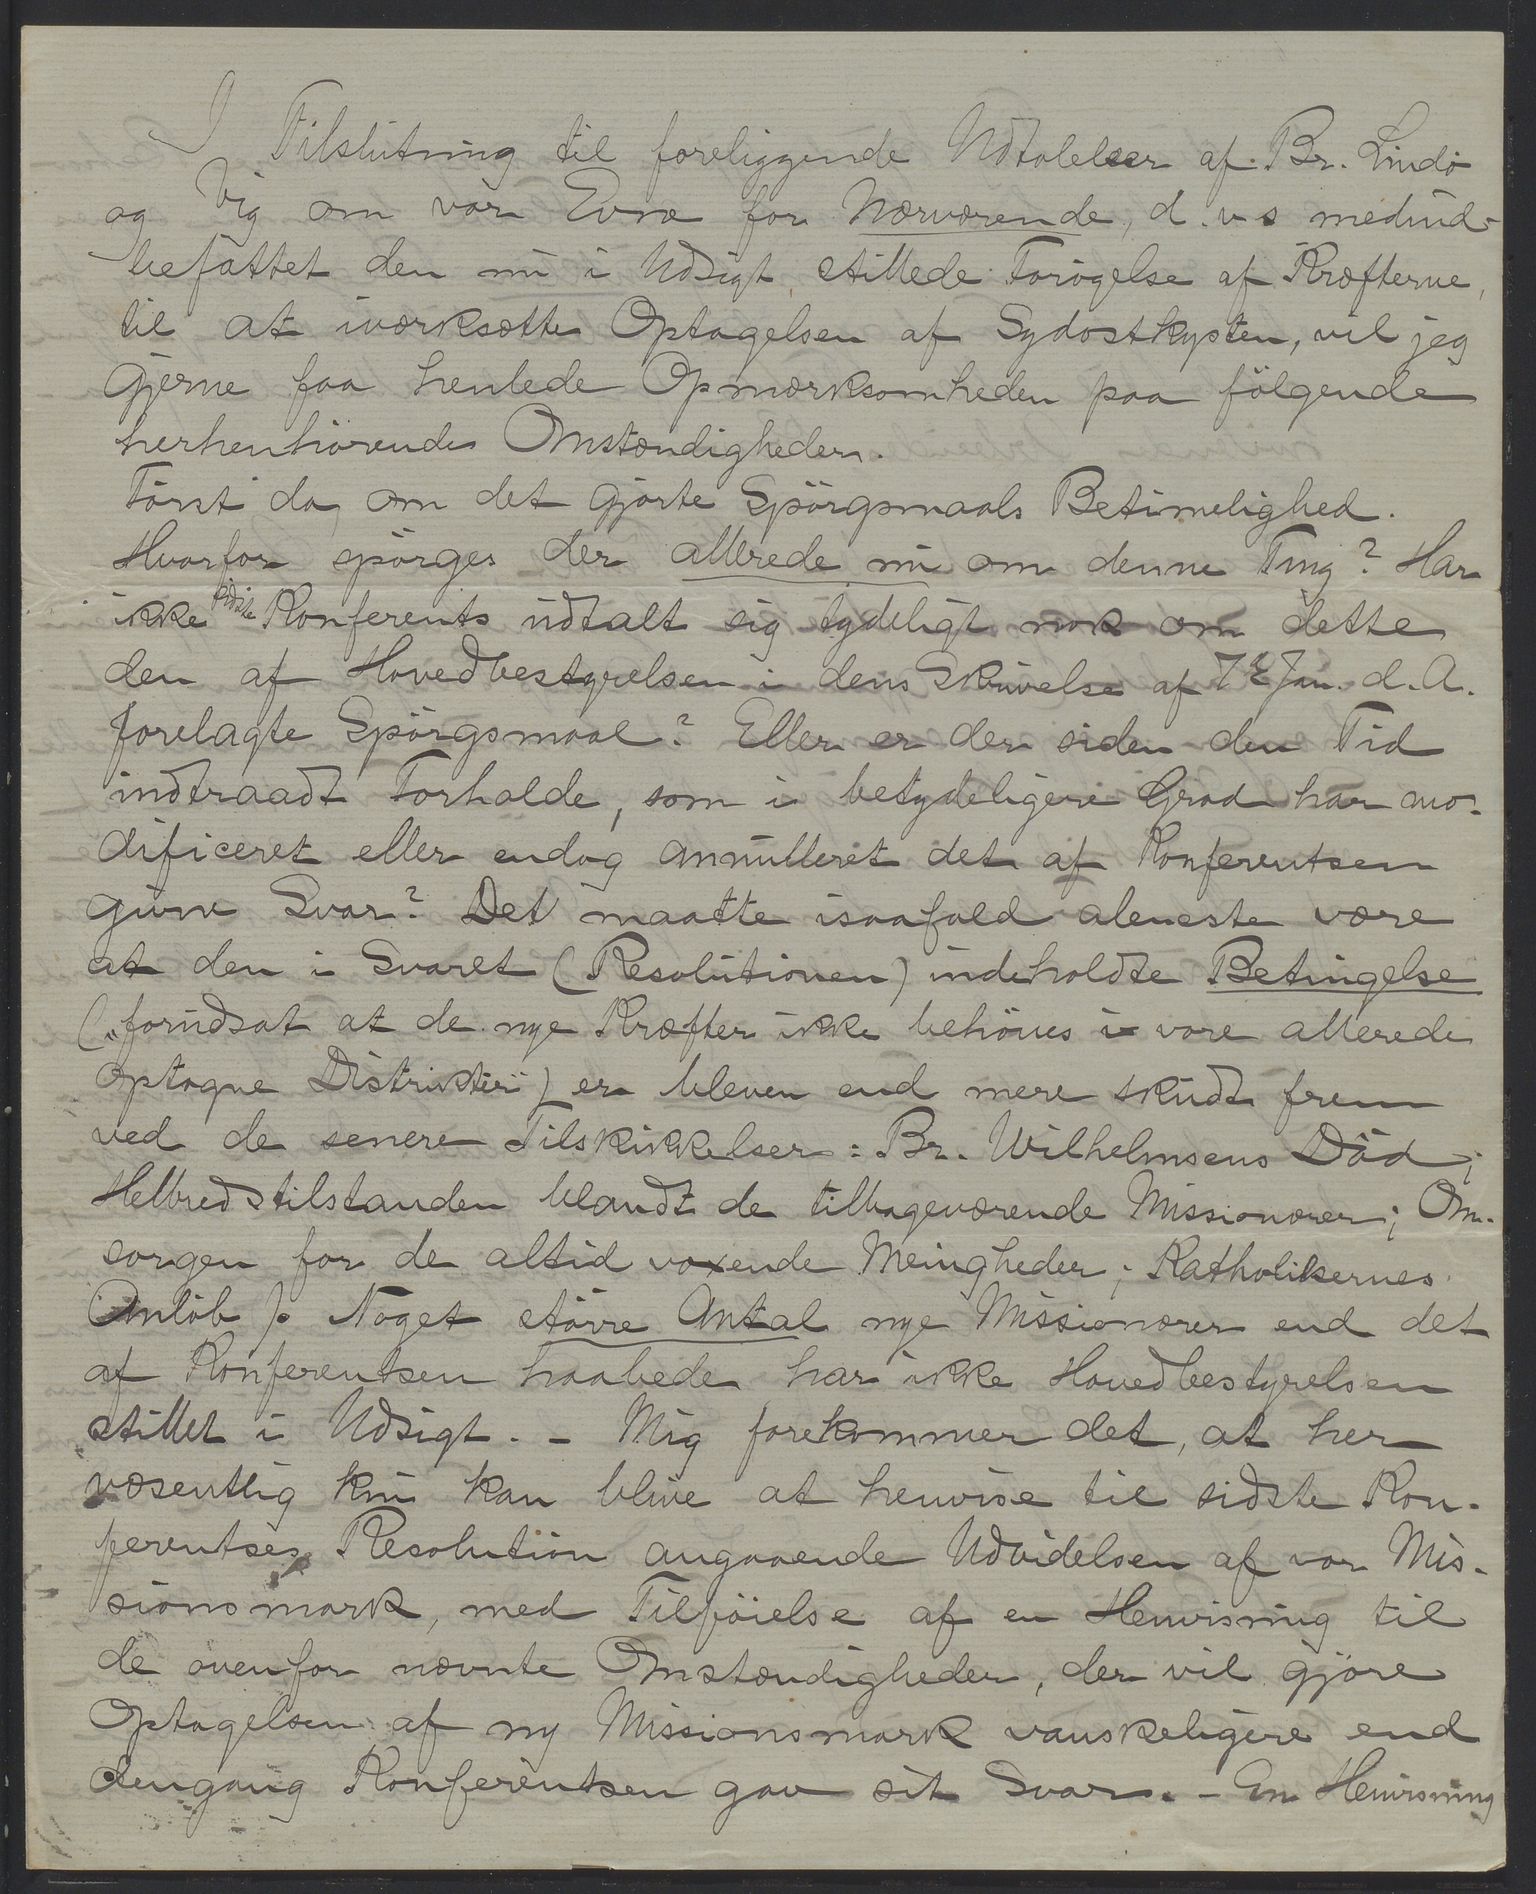 I Tilslutning til foreliggende Udtalelser af Br. Lindö
og Vig om vor Evne for Nærværende, d. v. s medind-
befattet den nu i Udsigt stillede Forögelse af Kræfterne,
til at iværksætte Optagelsen af Sydostkysten, vil jeg
gjerne faa henlede Opmærksomheden paa fölgende
herhenhörende Omstændigheder.
Först da om det gjorte Spörgsmaals Betimelighed.
Hvorfor spörges der allerede nu om denne Ting? Har
ikke sidste Konferents udtalt sig tydeligt nok om dette
den af Hovedbestyrelsen i dens Skrivelse af 7de Jan. d. A.
forelagte Spörgsmaal? Eller er der siden den Tid
indtraadt Forholde, som i betydeligere Grad har mo-
dificeret eller endog annulleret det af Konferentsen
givne Svar? Det maatte isaafald aleneste være
at den i Svaret (Resolutionen) indeholdte Betingelse
(„forudsat at de nye Kræfter ikke behöves i vore allerede
optagne Distrikter") er bleven end mere skudt frem
ved de senere Tilskikkelser: Br. Wilhelmsens Död;
Helbredstilstanden blandt de tilbageværende Missionærer; Om-
sorgen for de altid voxende Menigheder; Katholikernes
Anlöb p. Noget större Antal nye Missionærer end det
af Konferentsen haabede har ikke Hovedbestyrelsen
stillet i Udsigt. - Mig forekommer det, at her
væsentlig kun kan blive at henvise til sidste Kon-
ferentses Resolution angaaende Udvidelsen af vor Mis-
sionsmark, med Tilföielse af en Henvisning til
de ovenfor nævnte Omstændigheder, der vil gjöre
Optagelsen af ny Missionsmark vanskeligere end
dengang Konferentsen gav sit Svar. - En Henvisning